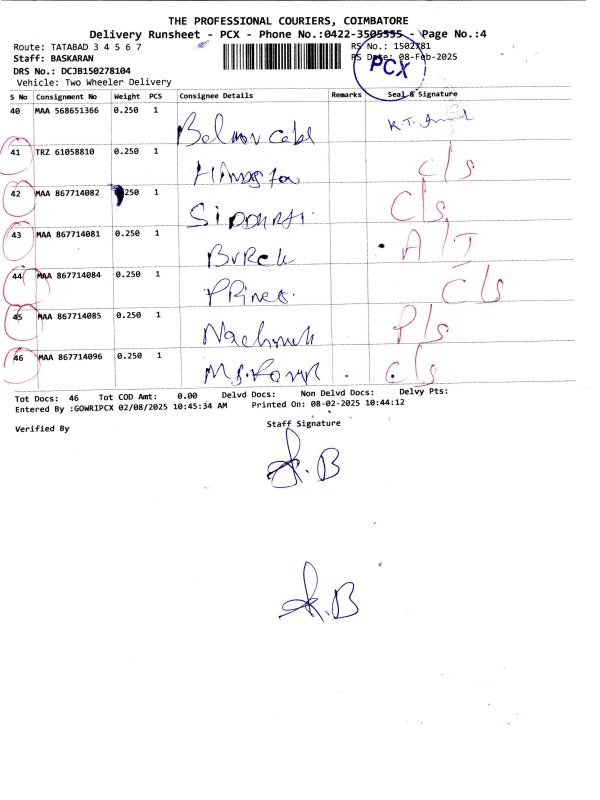 THE PROFESSIONAL COURIERS, COIMBATORE
Delivery Runsheet - PCX - Phone No.:0422-3505555 - Page No.:4
Route: TATABAD 3 4 5 6 7 RS No.: 1502781
Staff: BASKARAN RS Date: 08-Feb-2025
PCX
DRS No.: DCJB150278104
Vehicle: Two Wheeler Delivery
S No Consignment No Weight PCS Consignee Details Remarks Seal & Signature
40 MAA 568651366 0.250 1 K.T.
41 TRZ 61058810 0.250 1 C/S
42 MAA 867714082 0.250 1 C/S
43 MAA 867714081 0.250 1 A/T
44 MAA 867714084 0.250 1 C/S
45 MAA 867714085 0.250 1 P/S
46 MAA 867714096 0.250 1 C/S
Tot Docs: 46 Tot COD Amt: 0.00 Delvd Docs: Non Delvd Docs: Delvy Pts:
Entered By :GOWRIPCX 02/08/2025 10:45:34 AM Printed On: 08-02-2025 10:44:12
Verified By Staff Signature